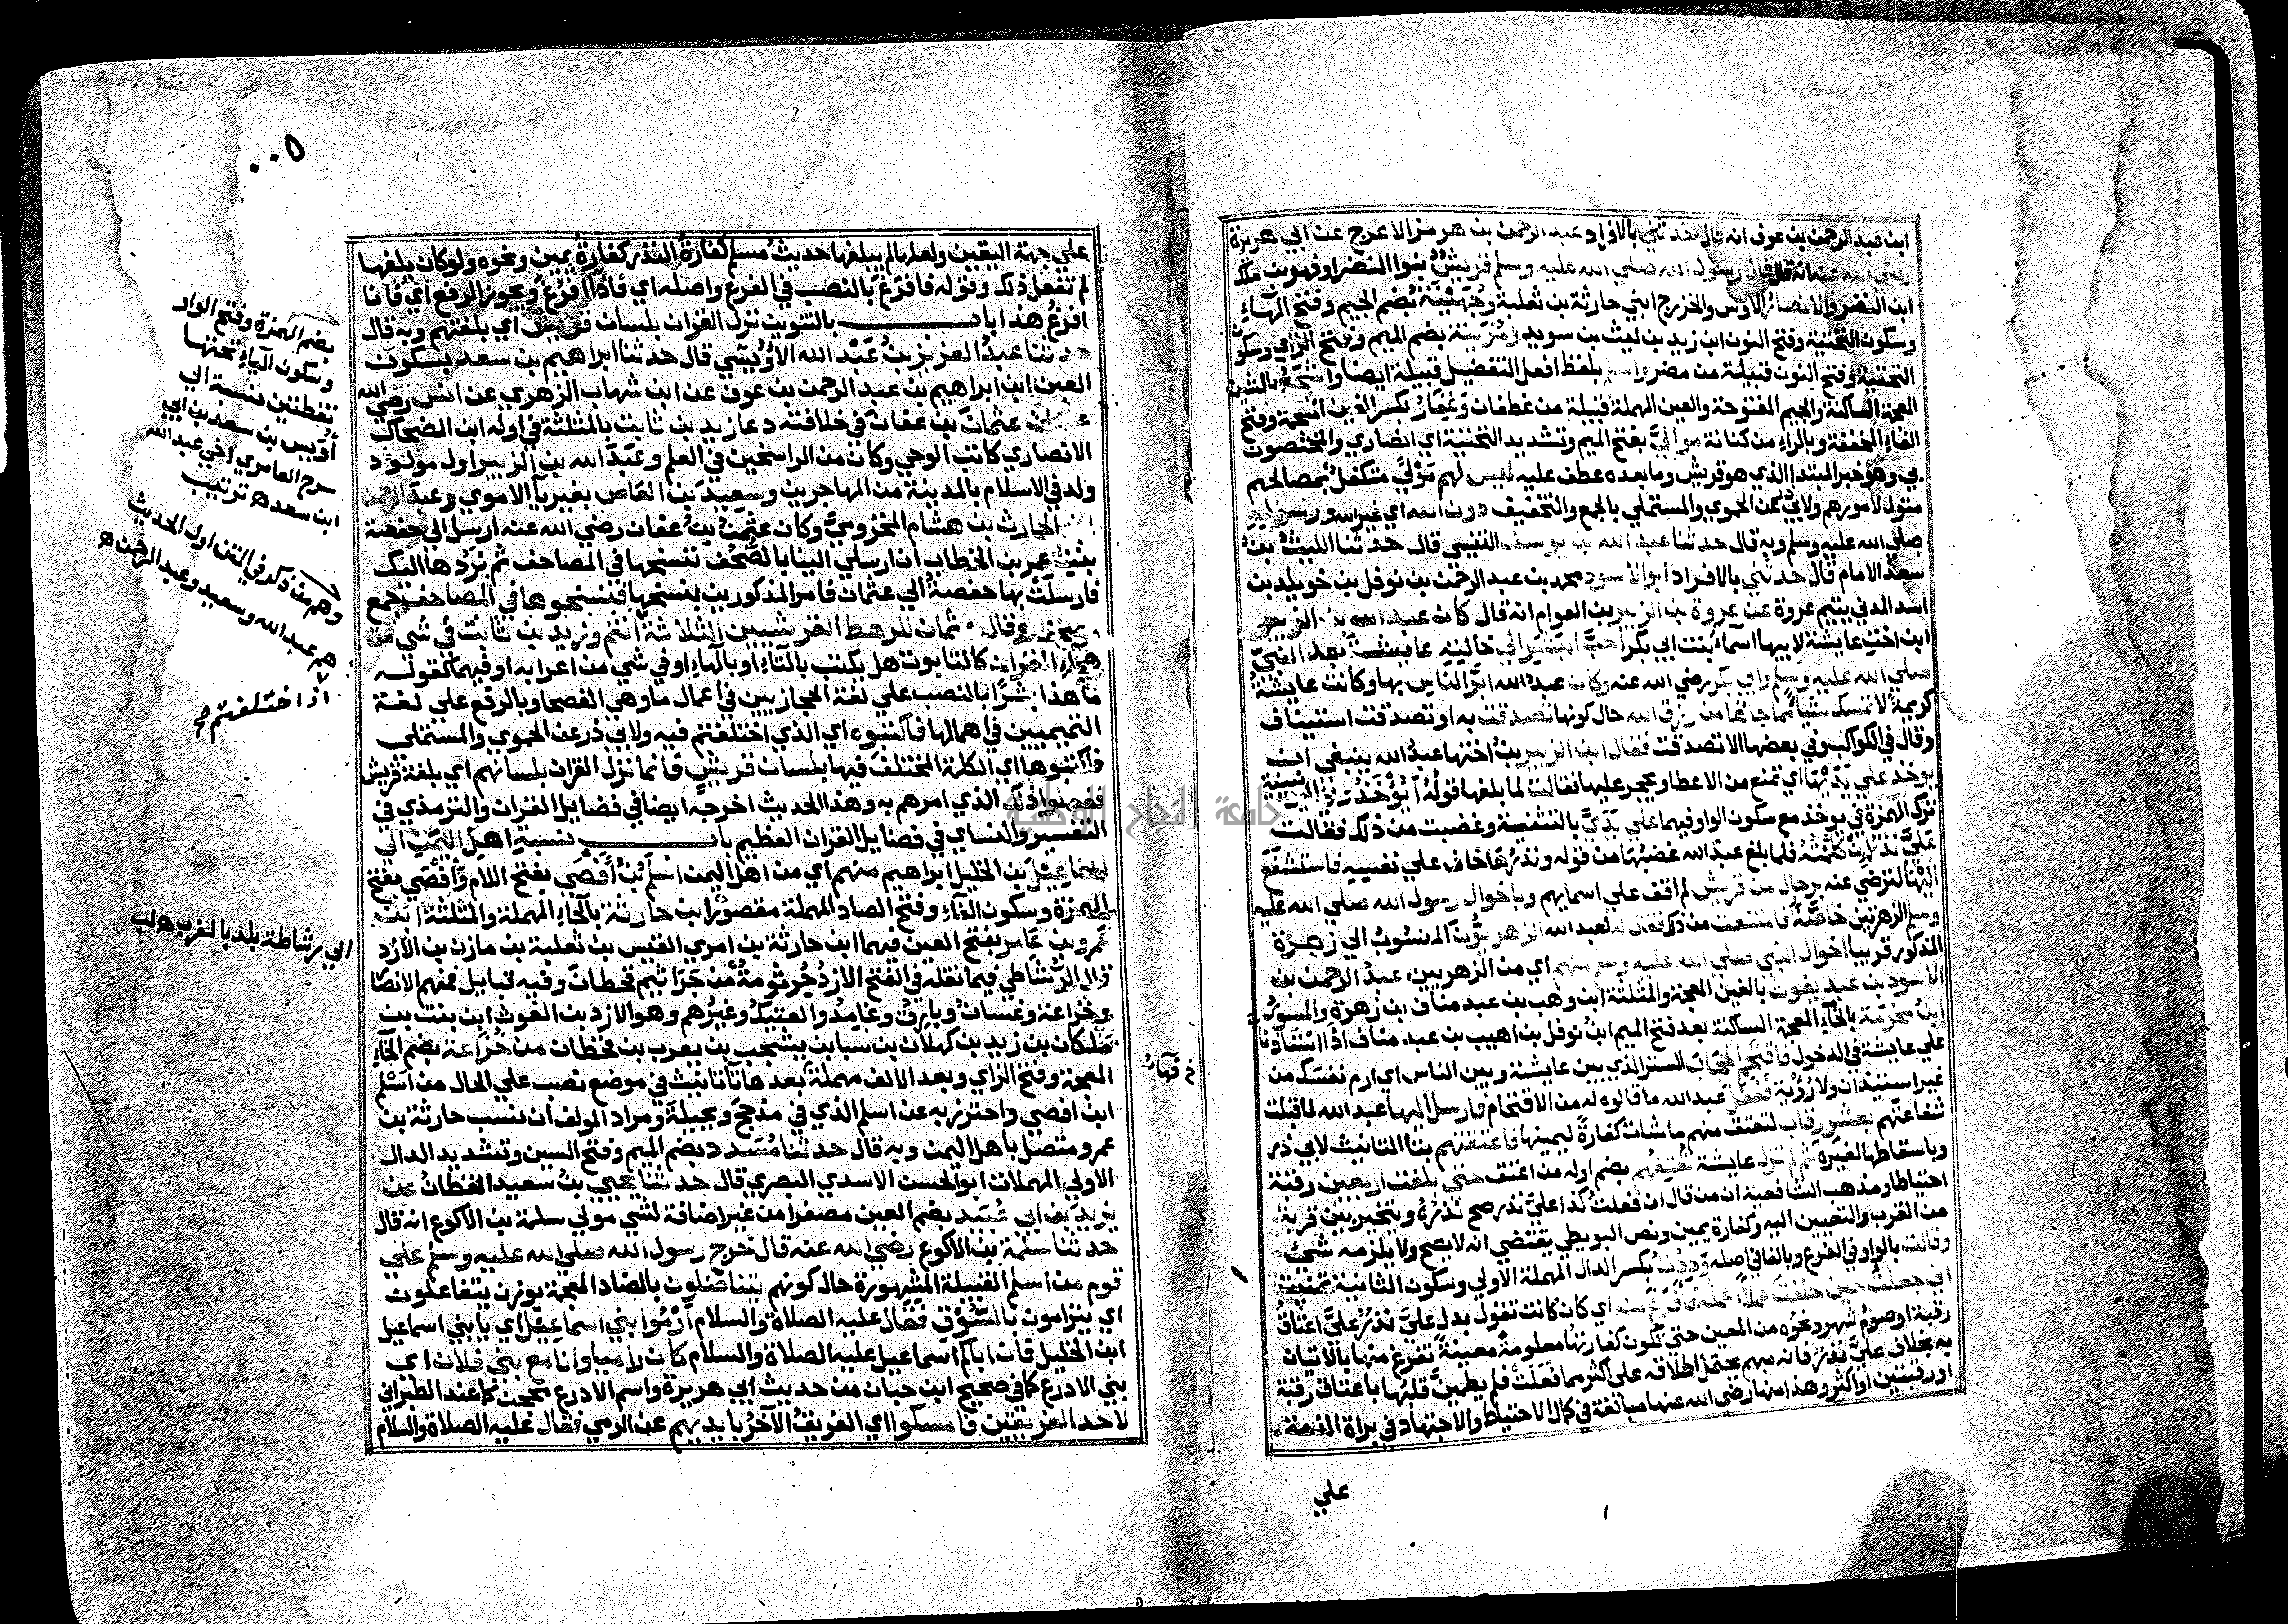 ابن عبد الرحمن بن عوف انه قال حدثني بالافراد عبد الرحمن بن هرمز الاعرج عن ابي هريرة
رضي الله عنه انه قال قال رسول الله صلي الله عليه وسلم قريش بنوا النضر او فهر بن ملك
ابن النضر والانصار الاوس والخزرج ابني حارثة بن ثعلبة وجهينة بضم الجيم وفتح الهاء
وسكون التحتية وفتح النون ابن زيد بن ليث بن سويد ومزينة بضم الميم وفتح الزاي وسكون
التحتية وفتح النون قبيلة من مضر واسلم بلفظ افعل التفضيل قبيلة ايضا واشجع بالشين
المعجمة الساكنة والجيم المفتوحة والعين المهملة قبيلة من غطفان وغفار بكسر الغين المعجمة وفتح
الفاء المخففة وبالراء من كنانة موالي بفتح الميم وتشديد التحتية اي انصاري والمختصون
بي وهو خبر المبتدا الذي هو قريش وما بعده عطف عليه ليس لهم مولي متكفل بمصالحهم
متول لامورهم ولابي ذر عن الحموي والمستملي بالجمع والتخفيف دون الله اي غير الله ورسوله
صلي الله عليه وسلم وبه قال حدثنا عبد الله بن يوسف التنيسي قال حدثنا الليث بن
سعد الامام قال حدثني بالافراد ابو الاسود محمد بن عبد الرحمن بن نوفل بن خويلد بن
اسد المدني يتيم عروة عن عروة بن الزبير بن العوام انه قال كان عبد الله بن الزبير
ابن اخت عايشة لابيها اسماء بنت ابي بكر احب البشر الي خاليته عايشة بعد النبي
صلي الله عليه وسلم وابي بكر رضي الله عنه وكان عبد الله ابر الناس بها وكانت عايشة
كريمة لا تمسك شيئا مما جاءها من رزق الله حال كونها تصدقت به او تصدقت استيناف
وقال في الكواكب وفي بعضها الا تصدقت فقال ابن الزبير بن اختها عبد الله ينبغي ان
يوخذ علي يديها اي تمنع من الاعطا ويحجر عليها فقالت لما بلغها قوله ايوخذ
ترك الهمزة في يوخذ مع سكون الواو فيهما علي يدي بالتثنية وغضبت من ذلك فقالت
علي نذر ان كلمته فلما بلغ عبد الله غضبها من قوله ونذرها خاف علي نفسه فاستشفع
اليها لترضي عنه برجال من قريش لم اقف علي اسمايهم وباخوال رسول الله صلي الله عليه
وسلم الزهريين خاصة فامتنعت من ذلك فقال له لعبد الله الزهريون المنسوبون الي زهرة
المذكور قريبا اخوال النبي صلي الله عليه وسلم منهم اي من الزهريين عبد الرحمن بن
الاسود بن عبد يغوث بالغين المعجمة والمثلثة ابن وهب بن عبد مناف بن زهرة والمسور
ابن مخرمة بالخاء المعجمة الساكنة بعد فتح الميم ابن نوفل بن اهيب بن عبد مناف اذا استاذنا
علي عايشة في الدخول فاقتحم الحجاب الستر الذي بين عايشة وبين الناس اي ارم نفسك من
غير استيذان ولا رؤية ففعل عبد الله ما قالوه له من الاقتحام فارسل اليها عبد الله لما قبلت
شفاعتهم بعشر رقاب لتعتق منهم ما شات كفارة ليمينها فاعتقتهم بتا التانيث لابي ذر
وباسقاطها لغيره ثم لم تزل عايشة تعتقهم بضم اوله من اعتق حتي بلغت اربعين رقبة
احتياطا ومذهب الشافعية ان من قال ان فعلت كذا علي نذر صح نذره ويتخير بين قربة
من القرب والتعيين اليه وكفارة يمين ونص البويطي يقتضي انه لا يصح ولا يلزمه شيء
وقالت بالواو في الفرع وبالفا في اصله وددت بكسر الدال المهملة الاولي وسكون الثانية تمنيت
اني جعلت حين حلفت عملا اعمله فافرغ منه اي كان كانت تقول بدل علي نذر علي اعتاق
رقبة او صوم شهر ونحوه من المعين حتي تكون كفارتها معلومة معينة تفرغ منها بالاتيان
به بخلاف علي نذر فانه مبهم يحتمل اطلاقه علي اكثر مما فعلت فلم يطمين قلبها باعتاق رقبة
او رقبتين او اكثر وهذا منها رضي الله عنها مبالغة في كمال الاحتياط والاجتهاد في براة الذمة
علي
٠٠٥
علي جهة اليقين ولعلها لم يبلغها حديث مسلم كفارة النذر كفارة يمين ونحوه ولو كان بلغها
لم تفعل ذلك وقوله فافرغ بالنصب في الفرع واصله اي فاذا افرغ ويجوز الرفع اي فانا
افرغ هذا باب بالتنوين نزل القران بلسان قريش اي بلغتهم وبه قال
حدثنا عبد العزيز بن عبد الله الاويسي قال حدثنا ابراهيم بن سعد بسكون
العين ابن ابراهيم بن عبد الرحمن بن عوف عن ابن شهاب الزهري عن انس رضي الله
عنه ان عثمان بن عفان في خلافته دعا زيد بن ثابت بالمثلثة في اوله ابن الضحاك
الانصاري كاتب الوحي وكان من الراسخين في العلم وعبد الله بن الزبير اول مولود
ولد في الاسلام بالمدينة من المهاجرين وسعيد بن العاص بغير يا الاموي وعبد الرحمن
ابن الحارث بن هشام المخزومي وكان عثمن بن عفان رضي الله عنه ارسل الي حفصة
بنت عمر بن الخطاب ان ارسلي الينا بالصحف ننسخها في المصاحف ثم نردها اليك
فارسلت بها حفصة الي عثمان فامر المذكورين بنسخها فنسخوها في المصاحف جمع
مصحف وقال عثمان للرهط القرشيين الثلاثة انتم وزيد بن ثابت في شي من
هجاء القران كالتابوت هل يكتب بالتاء او بالهاء او في شي من اعرابه او فيهما كقوله
ما هذا بشرا بالنصب علي لغة الحجازيين في اعمال ما وهي الفصحا وبالرفع علي لغة
التميميين في اهمالها فاكتبوه اي الذي اختلفتم فيه ولابي ذر عن الحموي والمستملي
فاكتبوها اي الكلمة المختلف فيها بلسان قريش فانما نزل القران بلسانهم اي بلغة قريش
ففعلوا ذلك الذي امرهم به وهذا الحديث اخرجه ايضا في فضايل القران والترمذي في
التفسير والنساي في فضايل القران العظيم باب نسبة اهل اليمن الي
اسماعيل بن الخليل ابراهيم منهم اي من اهل اليمن اسلم بن افصي بفتح اللام وافصي بفتح
الهمزة وسكون الفاء وفتح الصاد المهملة مقصورا ابن حارثة بالحاء المهملة والمثلثة ابن
عمرو بن عامر بفتح العين فيهما ابن حارثة بن امري القيس بن ثعلبة بن مازن بن الازد
قال الرشاطي فيما نقله في الفتح الازد جرثومة من جراثيم قحطان وفيه قبايل فمنهم الانصار
وخزاعة وغسان وبارق وغامد والعتيك وغيرهم وهو الازد بن الغوث ابن بنت بن
ملكان بن زيد بن كهلان بن سبا بن يشجب بن يعرب بن قحطان من خزاعة بضم الخاء
المعجمة وفتح الزاي وبعد الالف مهملة بعدها تا تانيث في موضع نصب علي الحال من اسلم
ابن افصي واحترز به عن اسلم الذي في مذحج وبجيلة ومراد المولف ان نسب حارثة بن
عمرو متصل باهل اليمن وبه قال حدثنا مسدد بضم الميم وفتح السين وتشديد الدال
الاولي المهملات ابو الحسن الاسدي البصري قال حدثنا يحيي بن سعيد القطان عن
يزيد بن ابي عبيد بضم العين مصغرا من غير اضافة لشي مولي سلمة بن الاكوع انه قال
حدثنا سلمة بن الاكوع رضي الله عنه قال خرج رسول الله صلي الله عليه وسلم علي
قوم من اسلم القبيلة المشهورة حال كونهم يتناضلون بالضاد المعجمة بوزن يتفاعلون
اي يترامون بالسوق فقال عليه الصلاة والسلام ارموا بني اسماعيل اي يا بني اسماعيل
ابن الخليل فان اباكم اسماعيل عليه الصلاة والسلام كان راميا وانا مع بني فلان اي
بني الادرع كما في صحيح ابن حبان من حديث ابي هريرة واسم الادرع محجن كما عند الطبراني
لاحد الفريقين فامسكوا اي الفريق الآخر بايديهم عن الرمي فقال عليه الصلاة والسلام
بضم الهمزة وفتح الواو
وسكون الياء تحتها
نقطتين نسبة الي
أويس بن سعد بن ابي
سرح العامري اخي عبد الله
ابن سعد ه ترتيب
وهم من ذكر في المتن اول الحديث
هم عبد الله وسعيد وعبد الرحمن ه
اذا اختلفتم
الي رشاطة بلد بالغرب ه لب
جامعة النجاح الوطنية